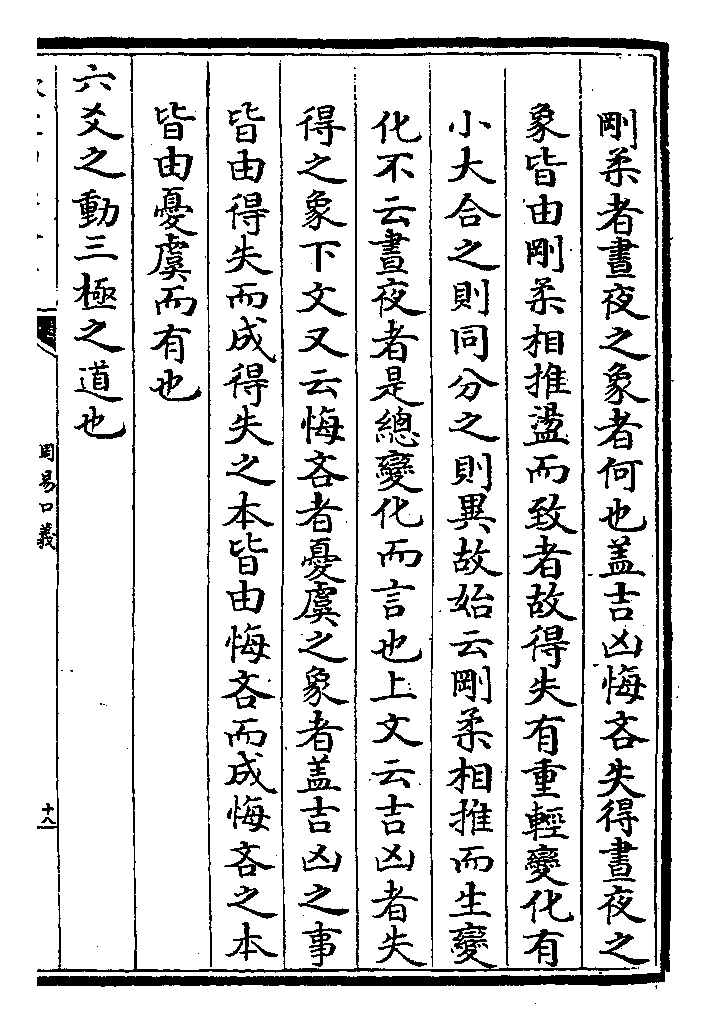 剛柔者晝夜之象者何也盖吉凶悔吝失得晝夜之
象皆由剛柔相推盪而致者故得失有重輕變化有
小大合之則同分之則異故始云剛柔相推而生變
化不云晝夜者是總變化而言也上文云吉凶者失
得之象下文又云悔吝者憂虞之象者盖吉凶之事
皆由得失而成得失之本皆由悔吝而成悔吝之本
皆由憂虞而有也
六爻之動三極之道也
周易口義
十八